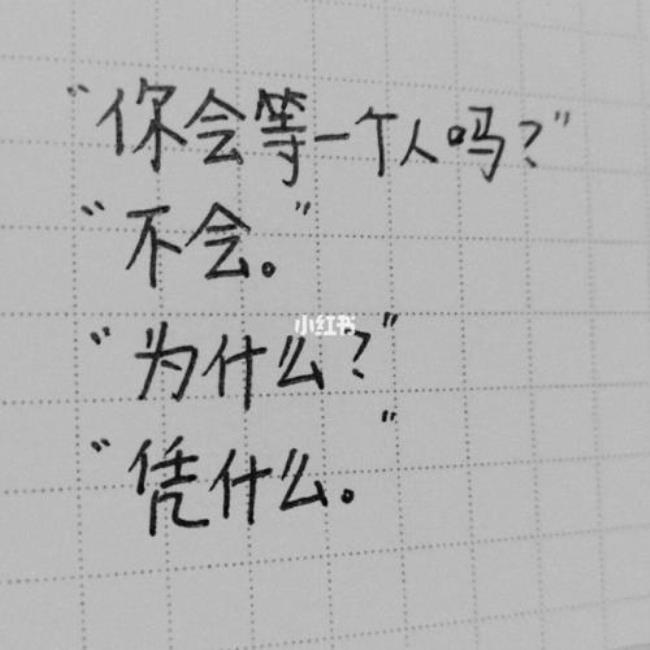 “你会等一个人吗？”
“不会。”
小红书
“为什么？”
“凭什么。”